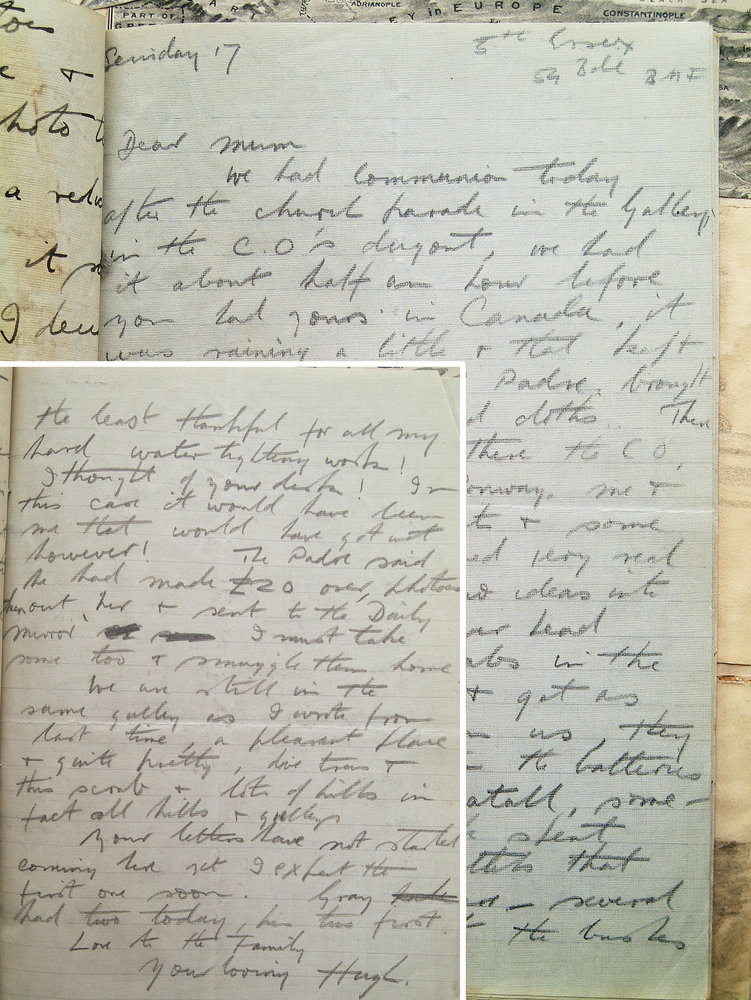 PART OF
ADRIANOPLE
EY IN EUROPE
CONSTANTINOPLE
&
hoto t
a redu
it
I
Sunday 17
5th Essex
54 BMF
Dear Mum
We had communion today
after the church parade in the Galley
in the C.O's dugout, we had
it about half an hour before
you had yours in Canada, it
was raining a little & that kept
Padre, brought
d cloths. There
there the C O,
Conway, me &
ts & some
ed very real
ideas into
ar head
abs in the
& got as
us, they
the batteries
atall, some-
spent
tters that
- several
the bushes
the least thankful for all my
hard water tighting work!
I thought of your desk! In
this case it would have been
me that would have got wet
however! The Padre said
he had made £20 over, photos
out her & sent to the Daily
Mirror I must take
some too & smuggle them home
We are still in the
same gulley as I wrote from
last time, a pleasant place
& quite pretty, trees &
this scrub & lots of hills in
fact all hills & gulleys
Your letters have not started
coming here yet I expect the
first one soon. Gray
had two today, his two first.
Love to the Family
Your loving Hugh.